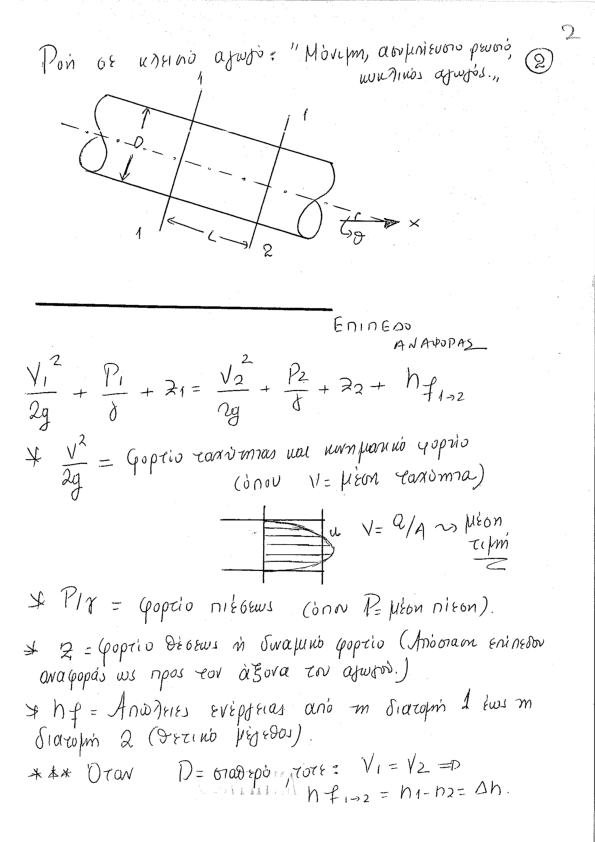 2
Ροή σε κλειστό αγωγό: "Μόνιμη, ασυμπίεστο ρευστό, (2)
κυκλικός αγωγός."
1 1
D
r
θ x
1 L 2
ΕΠΙΠΕΔΟ
ΑΝΑΦΟΡΑΣ
V₁²/2g + P₁/γ + z₁ = V₂²/2g + P₂/γ + z₂ + h_f₁→₂
* V²/2g = Φορτίο ταχύτητας και κινηματικό φορτίο
(όπου V = μέση ταχύτητα)
u V = Q/A ⇝ μέση
τιμή
* P/γ = φορτίο πιέσεως (όπου P = μέση πίεση).
* z = φορτίο θέσεως ή δυναμικό φορτίο (Απόσταση επίπεδου
αναφοράς ως προς τον άξονα του αγωγού.)
* hf = Απώλειες ενέργειας από τη διατομή 1 έως τη
διατομή 2 (θετικό μέγεθος).
*** Όταν D = σταθερό, τότε: V₁ = V₂ ⇒
h f₁→₂ = h₁ - h₂ = Δh.